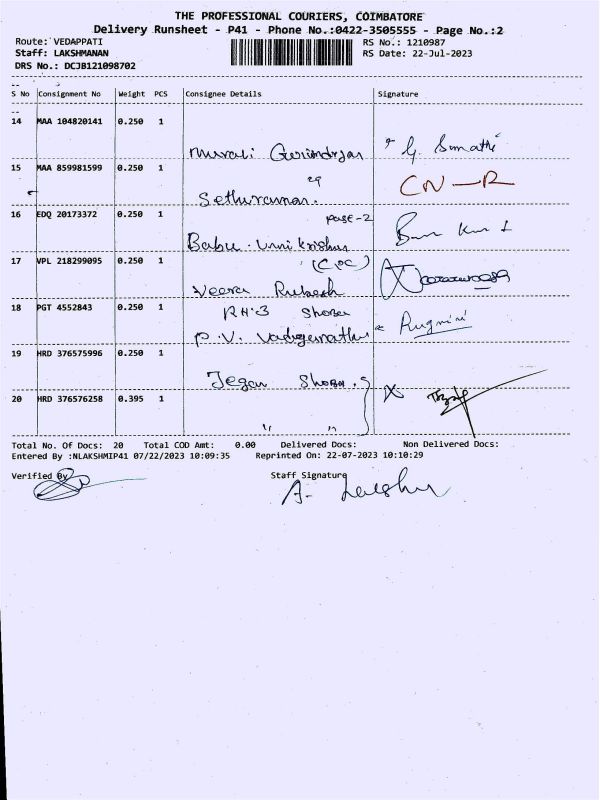 THE PROFESSIONAL COURIERS, COIMBATORE
Delivery Runsheet - P41 - Phone No.:0422-3505555 - Page No.:2
Route: VEDAPPATI RS No.: 1210987
Staff: LAKSHMANAN RS Date: 22-Jul-2023
DRS No.: DCJB121098702
S No Consignment No Weight PCS Consignee Details Signature
14 MAA 104820141 0.250 1
Murali
15 MAA 859981599 0.250 1
Sethuraman. CN-R
16 EDQ 20173372 0.250 1
Babu
17 VPL 218299095 0.250 1
Veera Rubesh
18 PGT 4552843 0.250 1
RH:3 Shoba
P.V. Rugmini
19 HRD 376575996 0.250 1
Jegan Shoba.
20 HRD 376576258 0.395 1
" "
Total No. Of Docs: 20 Total COD Amt: 0.00 Delivered Docs: Non Delivered Docs:
Entered By :NLAKSHMIP41 07/22/2023 10:09:35 Reprinted On: 22-07-2023 10:10:29
Verified By Staff Signature